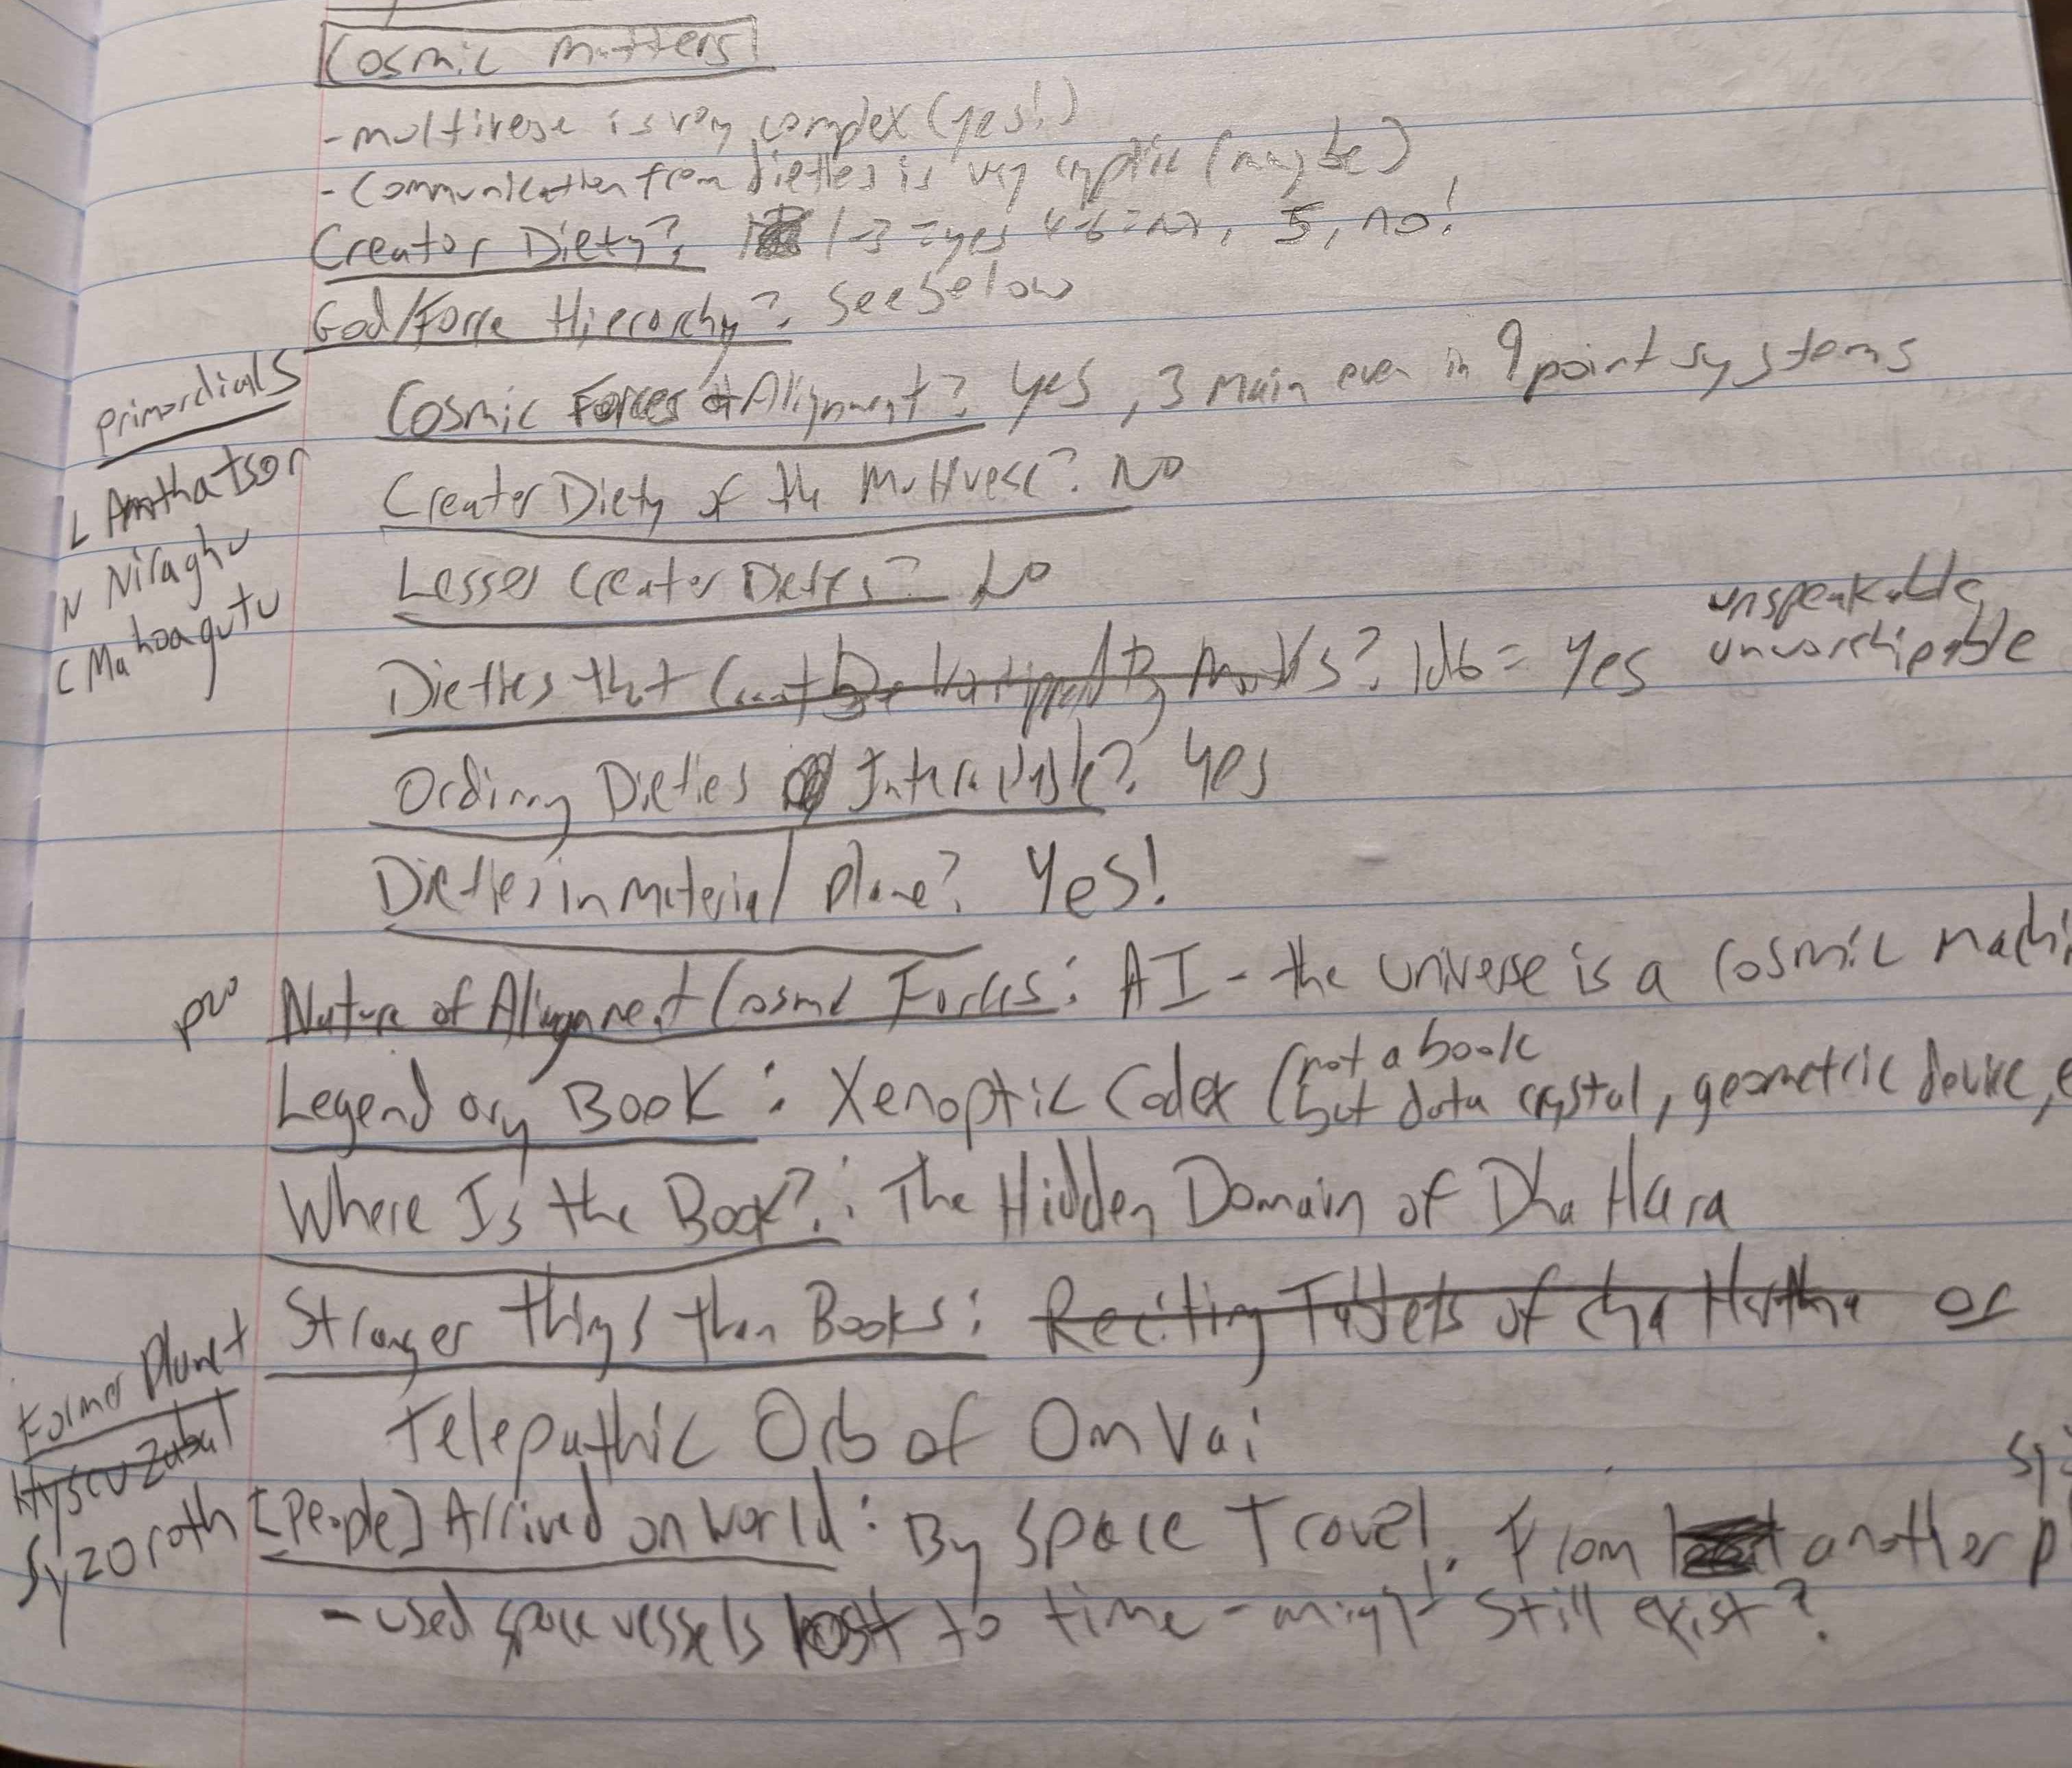 Cosmic Matters
- multiverse is very complex (yes!)
- Communication from dieties is very cryptic (maybe)
Creator Diety? 1-3 = yes 4-6 = no, 5, no!
God/Force Hierarchy? See below
primordials
Cosmic Forces of Alignment? Yes, 3 main even in 9 point systems
L Amthatsor
Creator Diety of the Multiverse? No
N Niraghu
Lesser Creator Dieties? No
C Mahoagutu
unspeakable
Dieties that Can't Be Worshipped By Mortals? 1d6 = Yes unworshipable
Ordinary Dieties Interactable? Yes
Dieties in Material Plane? Yes!
Nature of Alignment Cosmic Forces: AI - the universe is a Cosmic Machi
Legendary Book: Xenoptic Codex (not a book
but data crystal, geometric device, e
Where Is the Book?: The Hidden Domain of Dha Hara
Stranger things than Books: Reciting Tablets of or
Former Planet
Telepathic Orb of Om Vai
Syzoroth
[People] Arrived on World: By Space Travel. From another p
- used space vessels lost to time - might still exist?